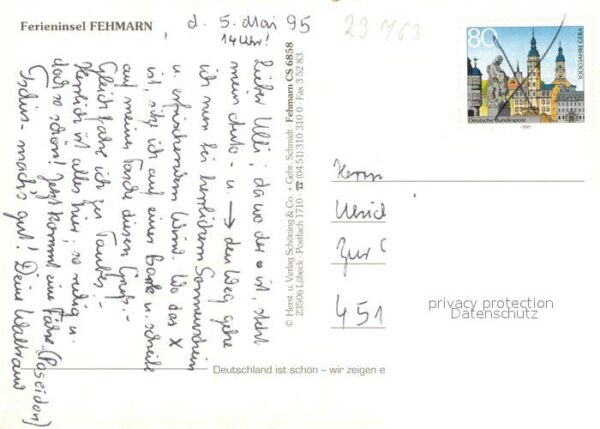 Ferieninsel FEHMARN
d. 5. Mai 95
14 Uhr!
23 763
80
1000 JAHRE GERA
Deutsche Bundespost
1995
Lieber Ulli; da wo der • ist, steht
mein Auto - u. → den Weg gehe
ich nun bei herrlichem Sonnenschein
u. erfrischendem Wind. Wo das X
ist, sitz ich auf einer Bank u. schreibe
auf meiner Tasche diesen Gruß.-
Gleich fahre ich zu
Herrlich ist alles hier; so ruhig u.
doch so schön! Jetzt kommt eine Fähre (Poseidon)
Tschüs - mach's gut! Deine Waltraud
© Herst. u. Verlag Schöning & Co. + Gebr. Schmidt Fehmarn CS 6858
23506 Lübeck · Postfach 1710 · ☎ (04 51) 310 310 0 · Fax 3 52 83
Herrn
Ulrich
Zur
451
privacy protection
Datenschutz
Deutschland ist schön – wir zeigen e